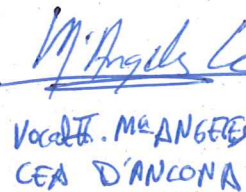 Mª Angeles Ce
Vocal II. Mª ANGELES
CEA D'ANCONA